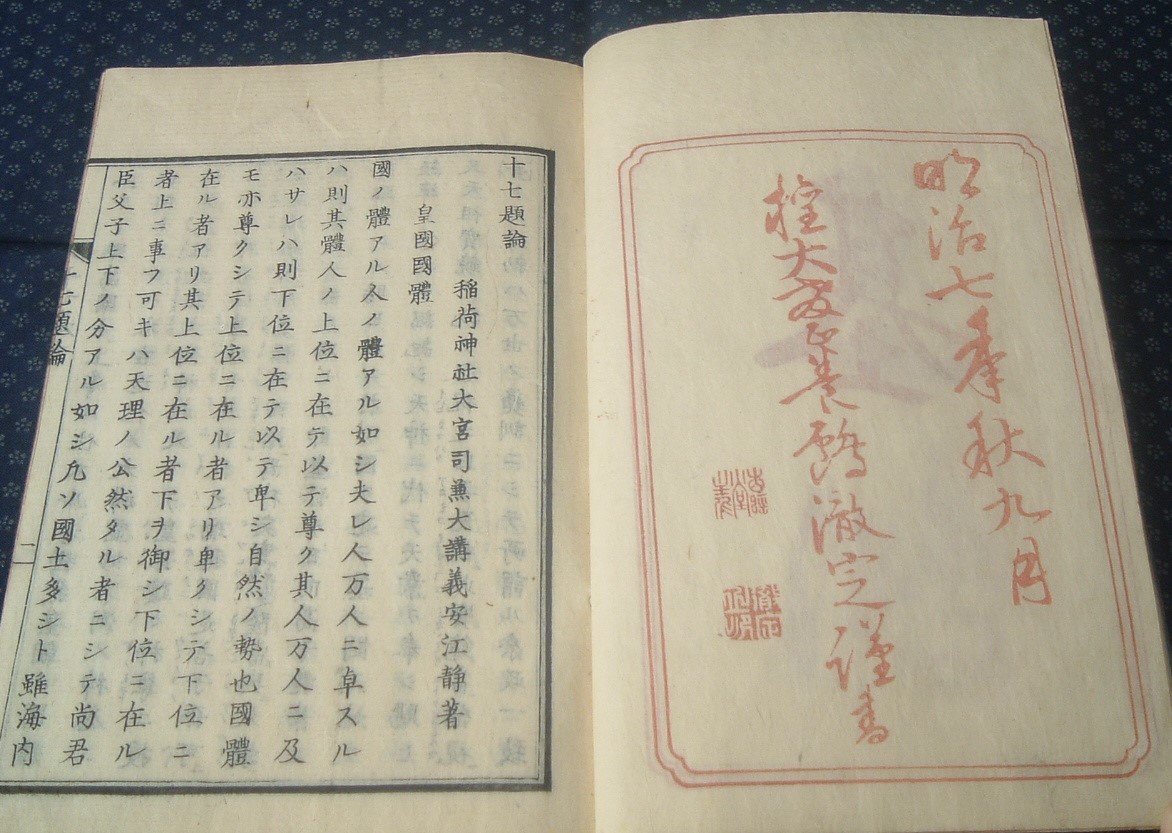 明治七季秋九月
権大教正養鸕徹定謹書
十七題論
稲荷神社大宮司兼大講義安江静著
皇國國體
國ノ體アル人ノ體アル如シ夫レ人万人ニ卓スル
ハ則其體人ノ上位ニ在テ以テ尊ク其人万人ニ及
ハサレハ則下位ニ在テ以テ卑シ自然ノ勢也國體
モ亦尊クシテ上位ニ在ル者アリ卑クシテ下位ニ
在ル者アリ其上位ニ在ル者下ヲ御シ下位ニ在ル
者上ニ事フ可キハ天理ノ公然タル者ニシテ尚君
臣父子上下ノ分アル如シ凢ソ國土多シト雖海内
十七題論
一